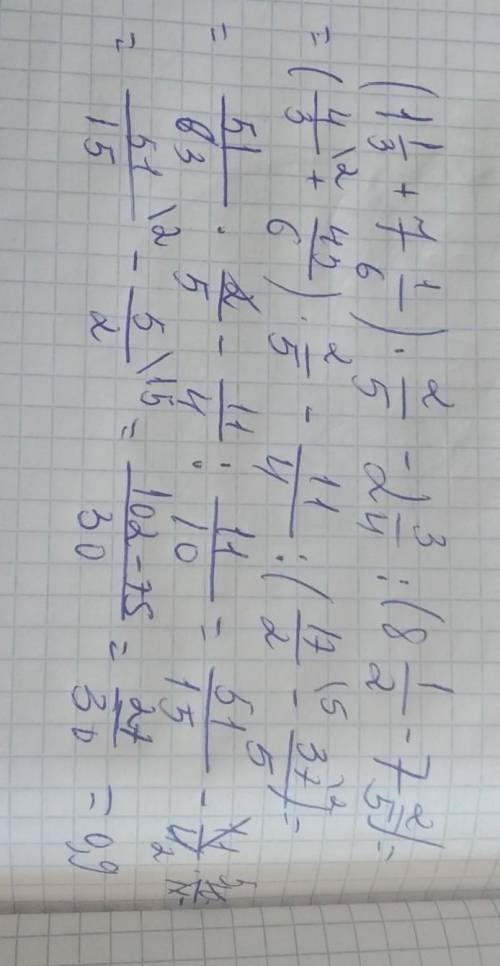 (1 1/3 + 7 1/6) · 2/5 - 2 3/4 : (8 1/2 - 7 2/5) =
= (4/3 \2 + 43/6) · 2/5 - 11/4 : (17/2 \5 - 37/5 \2) =
= 51/6 3 · 2/5 - 11/4 : 11/10 = 51/15 - 11/4 2 · 10 5/11
= 51/15 \2 - 5/2 \15 = 102-75/30 = 27/30 = 0,9